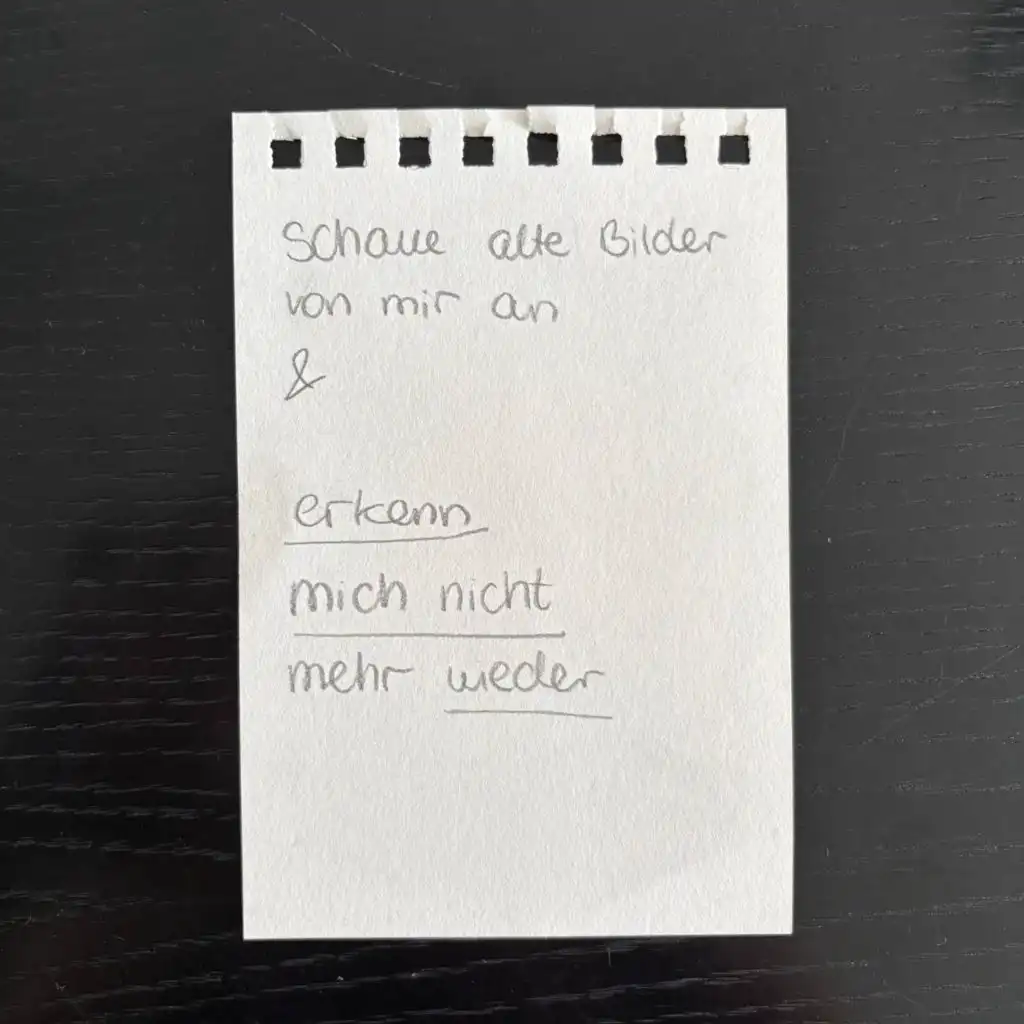 Schaue alte Bilder
von mir an
&
erkenn
mich nicht
mehr wieder